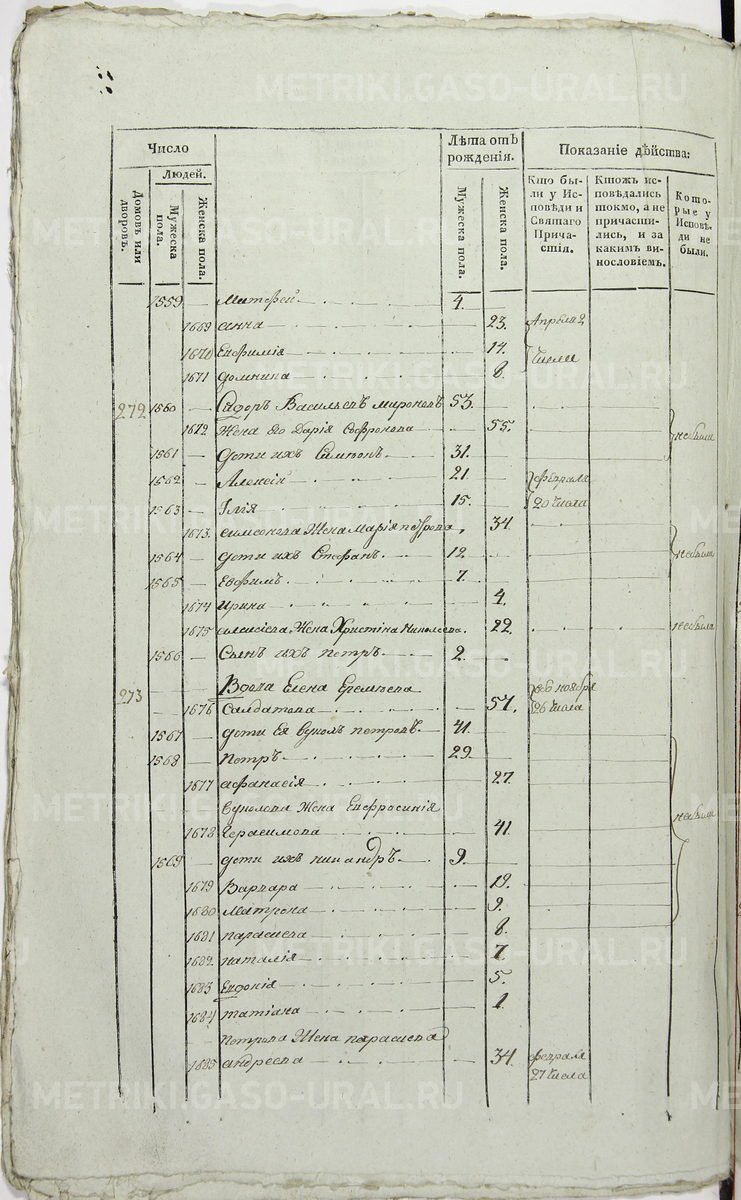 METRIKI.GASO-URAL.RU
Число
Людей.
Домовъ или дворовъ.
Мужеска пола.
Женска пола.
Лѣта отъ рожденія.
Мужеска пола.
Женска пола.
Показаніе дѣйства:
Кто бы-
ли у Ис-
повѣди и
Святаго
Прича-
стія.
Ктожъ ис-
повѣдались
токмо, а не
причасти-
лись, и за
какимъ ви-
нословіемъ.
Кото-
рые у
Исповѣ-
ди не
были.
1559 Матѳей 4.
1669 анна 23. Апреля 2
1670 Евфимія 14. числа
1671 домнина 8.
272 1560 Сидоръ Васильевъ мироновъ 53.
1672 жена его Дарія Софронова 55. небыли
1561 дети ихъ Симеонъ 31.
1562 Алексій 21. февраля
1563 Ілія 15. 20 числа
1673 симеонова жена Марія петрова 34.
1564 дети ихъ Стефанъ 12. небыли
1565 Евфимъ 7.
1674 ирина 4.
1675 алексіева жена Христина Николаева 22. небыла
1566 Сынъ ихъ петръ 2.
273 Вдова Елена Еремеева ноября
1676 Салдатова 57. 26 числа
1567 дети Ея Вуколъ петровъ 41.
1568 петръ 29.
1677 афанасія 27.
Вуколова жена Евфросинія небыли
1678 Герасимова 41.
1569 дети ихъ никандръ 9.
1679 Варвара 19.
1680 Матрона 9.
1681 парасковa 8.
1682 наталія 7.
1683 Евдокія 5.
1684 татіана 1.
петрова жена парасковa
1685 андреева 34. февраля
27 числа